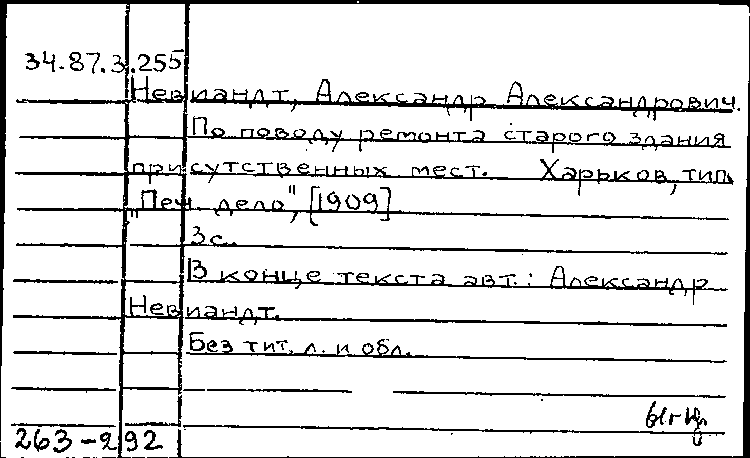 34-87.3.255
Невиандт, Александр Александрович.
По поводу ремонта старого здания
присутственных мест. Харьков, тип.
"Печ. дело", [1909]
3с.
В конце текста авт.: Александр
Невиандт.
Без тит. л. и обл.
263-292